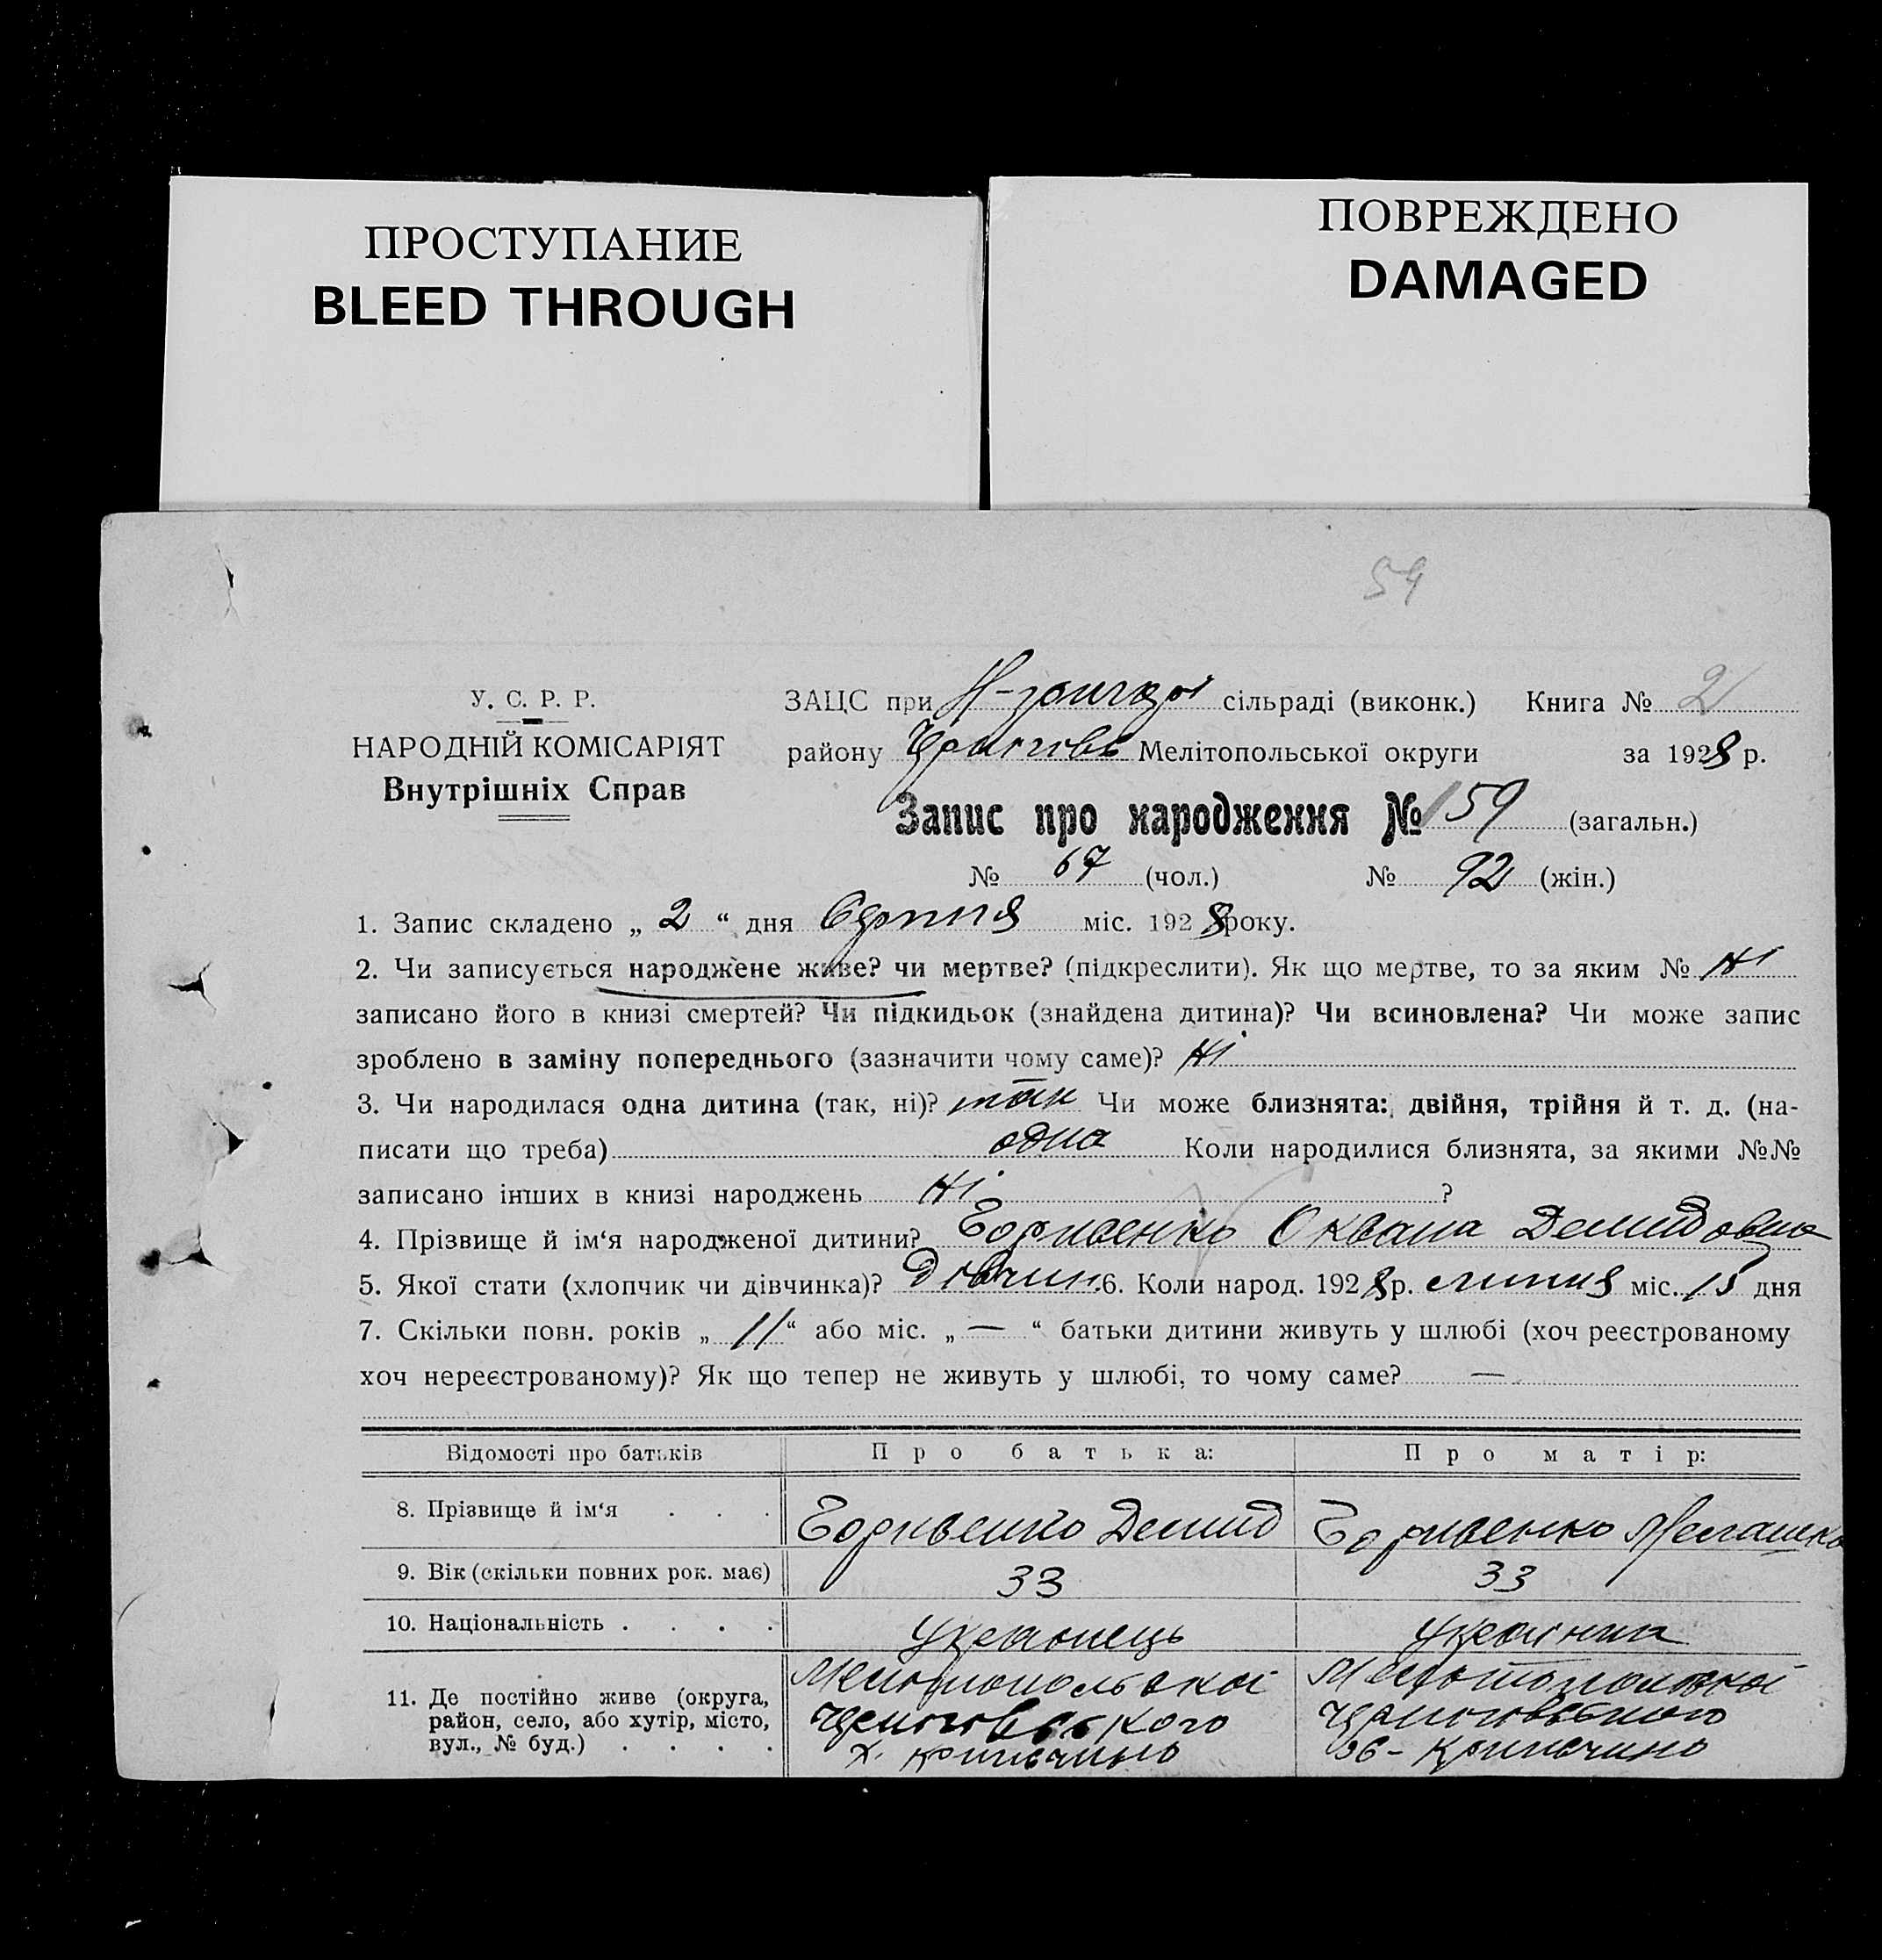 ПРОСТУПАНИЕ
BLEED THROUGH
ПОВРЕЖДЕНО
DAMAGED
59
У. С. Р. Р.
НАРОДНІЙ КОМІСАРІЯТ
Внутрішніх Справ
ЗАЦС при сільраді (виконк.) Книга № 2
району Мелітопольської округи за 1928 р.
Запис про народження № 159 (загальн.)
№ 67 (чол.) № 92 (жін.)
1. Запис складено „ 2 “ дня Серпня міс. 1928 року.
2. Чи записується народжене живе? чи мертве? (підкреслити). Як що мертве, то за яким № Ні
записано його в книзі смертей? Чи підкидьок (знайдена дитина)? Чи всиновлена? Чи може запис
зроблено в заміну попереднього (зазначити чому саме)? Ні
3. Чи народилася одна дитина (так, ні)? так Чи може близнята: двійня, трійня й т. д. (на-
писати що треба) одна Коли народилися близнята, за якими №№
записано інших в книзі народжень Ні ?
4. Прізвище й ім‘я народженої дитини? Оксана Демидовна
5. Якої стати (хлопчик чи дівчинка)? Дівчин. 6. Коли народ. 1928 р. липня міс. 15 дня
7. Скільки повн. років „ 11 “ або міс. „ — “ батьки дитини живуть у шлюбі (хоч реєстрованому
хоч нереєстрованому)? Як що тепер не живуть у шлюбі, то чому саме? —
Відомості про батьків Про батька: Про матір:
8. Прізвище й ім‘я . . . Демид Мелашка
9. Вік (скільки повних рок. має) 33 33
10. Національність . . . . Українець Українка
11. Де постійно живе (округа, район, село, або хутір, місто, вул., № буд.) . . . . Мелітопольскої Мелітопольскої